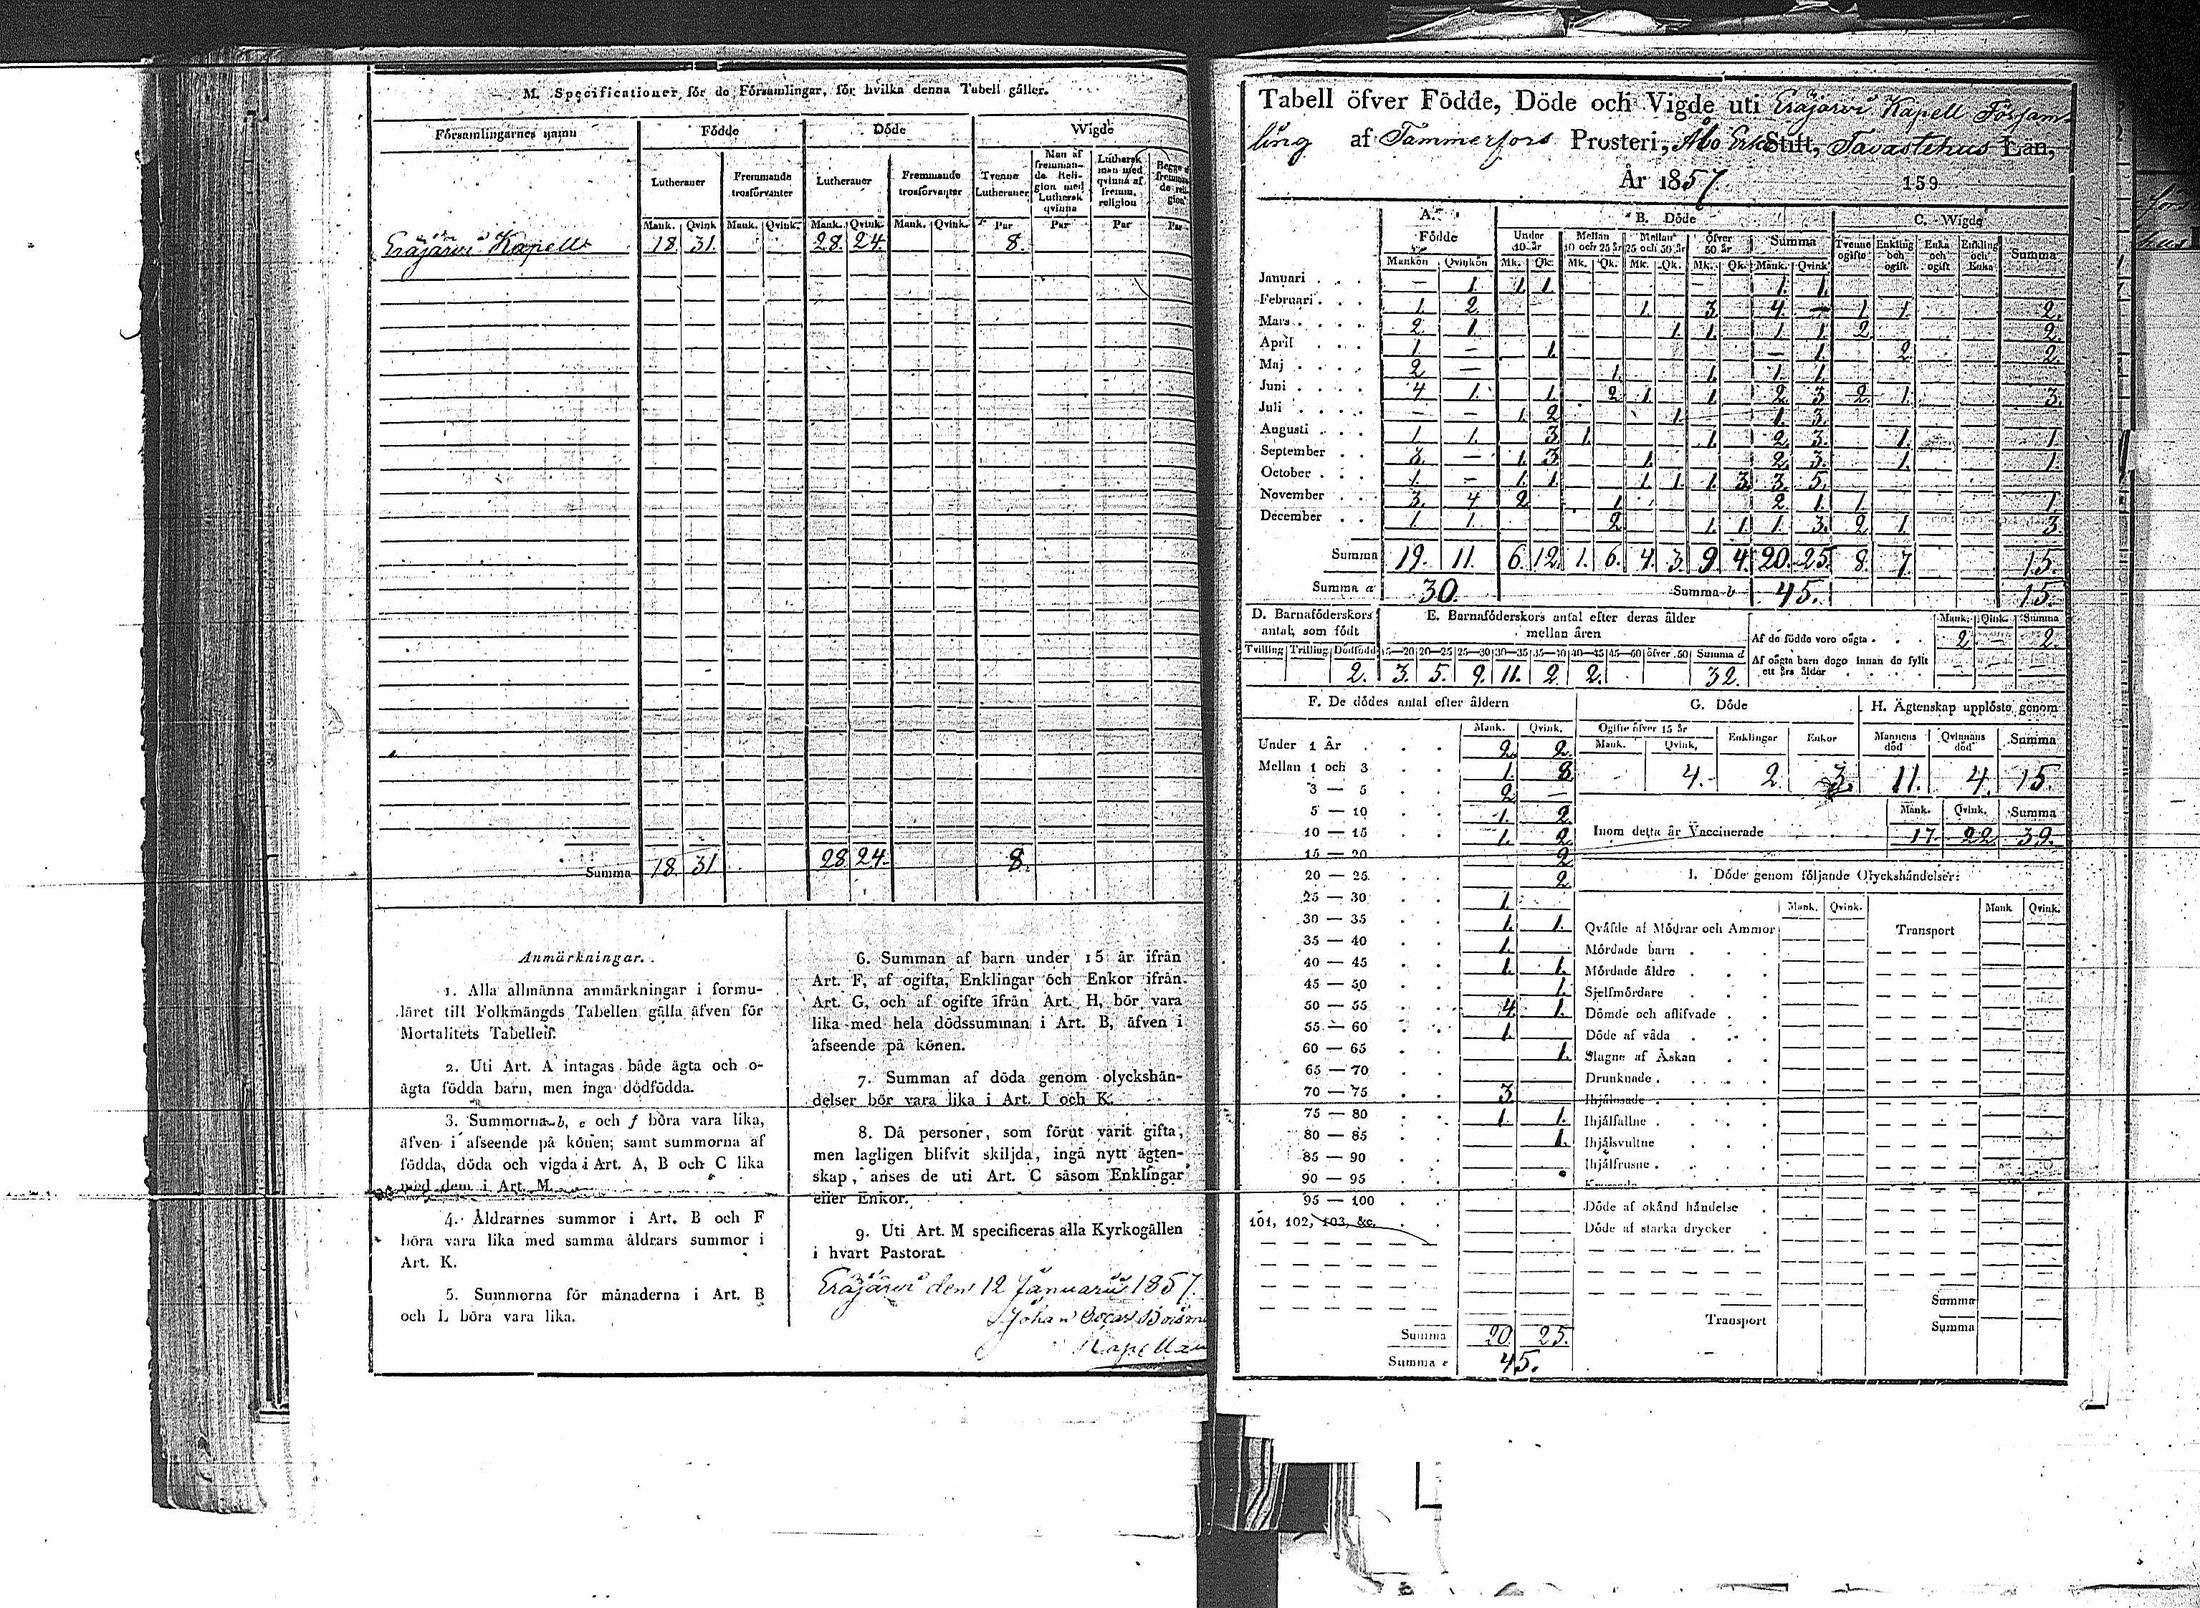 M. Specificationer, för de Församlingar, för hvilka denna Tabell gäller.
Församlingarnes namn Födde Döde Wigde
Lutheraner Fremmande trosförvanter Lutheraner Fremmande trosförvanter Tvenne Lutheraner Man af fremmande Religion med Luthersk qvinna Luthersk man med qvinna af fremm. religion Begge af fremmande religion
Mank. Qvink Mank. Qvink. Mank. Qvink. Mank. Qvink. Par Par Par Par
Eräjärvi Kapell 18. 31. 28. 24. 8.
Summa 18. 31. 28. 24. 8.
Anmärkningar.
1. Alla allmänna anmärkningar i formu-
läret till Folkmängds Tabellen gälla äfven för
Mortalitets Tabellen.
2. Uti Art. A intagas både ägta och o-
ägta födda barn, men inga dödfödda.
3. Summorna b, e och f böra vara lika,
äfven i afseende på könen; samt summorna af
födda, döda och vigda i Art. A, B och C lika
med dem i Art. M.
4. Åldrarnes summor i Art. B och F
böra vara lika med samma åldrars summor i
Art. K.
5. Summorna för månaderna i Art. B
och L böra vara lika.
6. Summan af barn under 15 år ifrån
Art. F, af ogifta, Enklingar och Enkor ifrån
Art. G, och af ogifte ifrån Art. H, bör vara
lika med hela dödssumman i Art. B, äfven i
afseende på könen.
7. Summan af döda genom olyckshän-
delser bör vara lika i Art. I och K.
8. Då personer, som förut varit gifta,
men lagligen blifvit skiljda, ingå nytt ägten-
skap, anses de uti Art. C såsom Enklingar
eller Enkor.
9. Uti Art. M specificeras alla Kyrkogällen
i hvart Pastorat.
Eräjärvi den 12 Januarii 1857.
Johan Oscar
Kapellan
Tabell öfver Födde, Döde och Vigde uti Eräjärvi Kapell Försam-
ling af Tammerfors Prosteri, Åbo Erke Stift, Tavastehus Län,
År 1857 159
A. Födde B. Döde C. Wigde
Under 10 år Mellan 10 och 25 år Mellan 25 och 50 år Öfver 50 år Summa Tvenne ogifte Enkling och ogift Enka och ogift Enkling och Enka Summa
Mankön Qvinkön Mk. Qk. Mk. Qk. Mk. Qk. Mk. Qk. Mank. Qvink.
Januari — 1. 1. 1. 1. 1.
Februari 1. 2. 1. 3. 4. — 1. 1. 2.
Mars 2. 1. 1. 1. 1. 1. 2. 2.
April 1. — 1. — 1. 2. 2.
Maj 2. — 1. 1. 1. 1.
Juni 4. 1. 1. 2. 1. 1. 2. 3. 2. 1. 3.
Juli — — 1. 2. 1. 1. 3.
Augusti 1. 1. 3. 1. 1. 2. 3. 1. 1.
September 3. — 1. 3. 1. 2. 3. 1. 1.
October 1. — 1. 1. 1. 1. 1. 3. 3. 5.
November 3. 4 2. 1. 2. 1. 1. 1.
December 1. 1. 2. 1. 1. 1. 3. 2. 1. 3.
Summa 19. 11. 6. 12. 1. 6. 4. 3. 9. 4. 20. 25. 8. 7. 15.
Summa a 30. Summa b 45. 15.
D. Barnaföderskors antal, som födt
Tvilling Trilling Dödfödd
2.
E. Barnaföderskors antal efter deras ålder mellan åren
15—20 20—25 25—30 30—35 35—40 40—45 45—50 öfver 50 Summa d
3. 5. 9. 11. 2. 2. 32.
Mank. Qink. Summa
Af de födde voro oägta 2. 2.
Af oägta barn dogo innan de fyllt ett års ålder — — —
F. De dödes antal efter åldern
Mank. Qvink.
Under 1 År 2. 2.
Mellan 1 och 3 1. 8.
3 — 5 2. —
5 — 10 1. 2.
10 — 15 1. 2.
15 — 20 2.
20 — 25 2.
25 — 30 1.
30 — 35 1. 1.
35 — 40 1.
40 — 45 1. 1.
45 — 50 1.
50 — 55 4. 1.
55 — 60 1.
60 — 65 1.
65 — 70
70 — 75 3.
75 — 80 1. 1.
80 — 85 1.
85 — 90
90 — 95
95 — 100
101, 102, 103, &c.
Summa 20. 25.
Summa e 45.
G. Döde
Ogifte öfver 15 år Enklingar Enkor
Mank. Qvink.
- 4. 2. 3.
H. Ägtenskap upplöste genom
Mannens död Qvinnans död Summa
11. 4. 15.
Mank. Qvink. Summa
Inom detta år Vaccinerade 17. 22. 39.
I. Döde genom följande Olyckshändelser:
Mank. Qvink. Mank Qvink.
Qväfde af Mödrar och Ammor Transport
Mördade barn
Mördade äldre
Sjelfmördare
Dömde och aflifvade
Döde af våda
Slagne af Åskan
Drunknade
Ihjälosade
Ihjälfallne
Ihjälsvultne
Ihjälfrusne
Döde af okänd händelse
Döde af starka drycker
Summa
Transport Summa